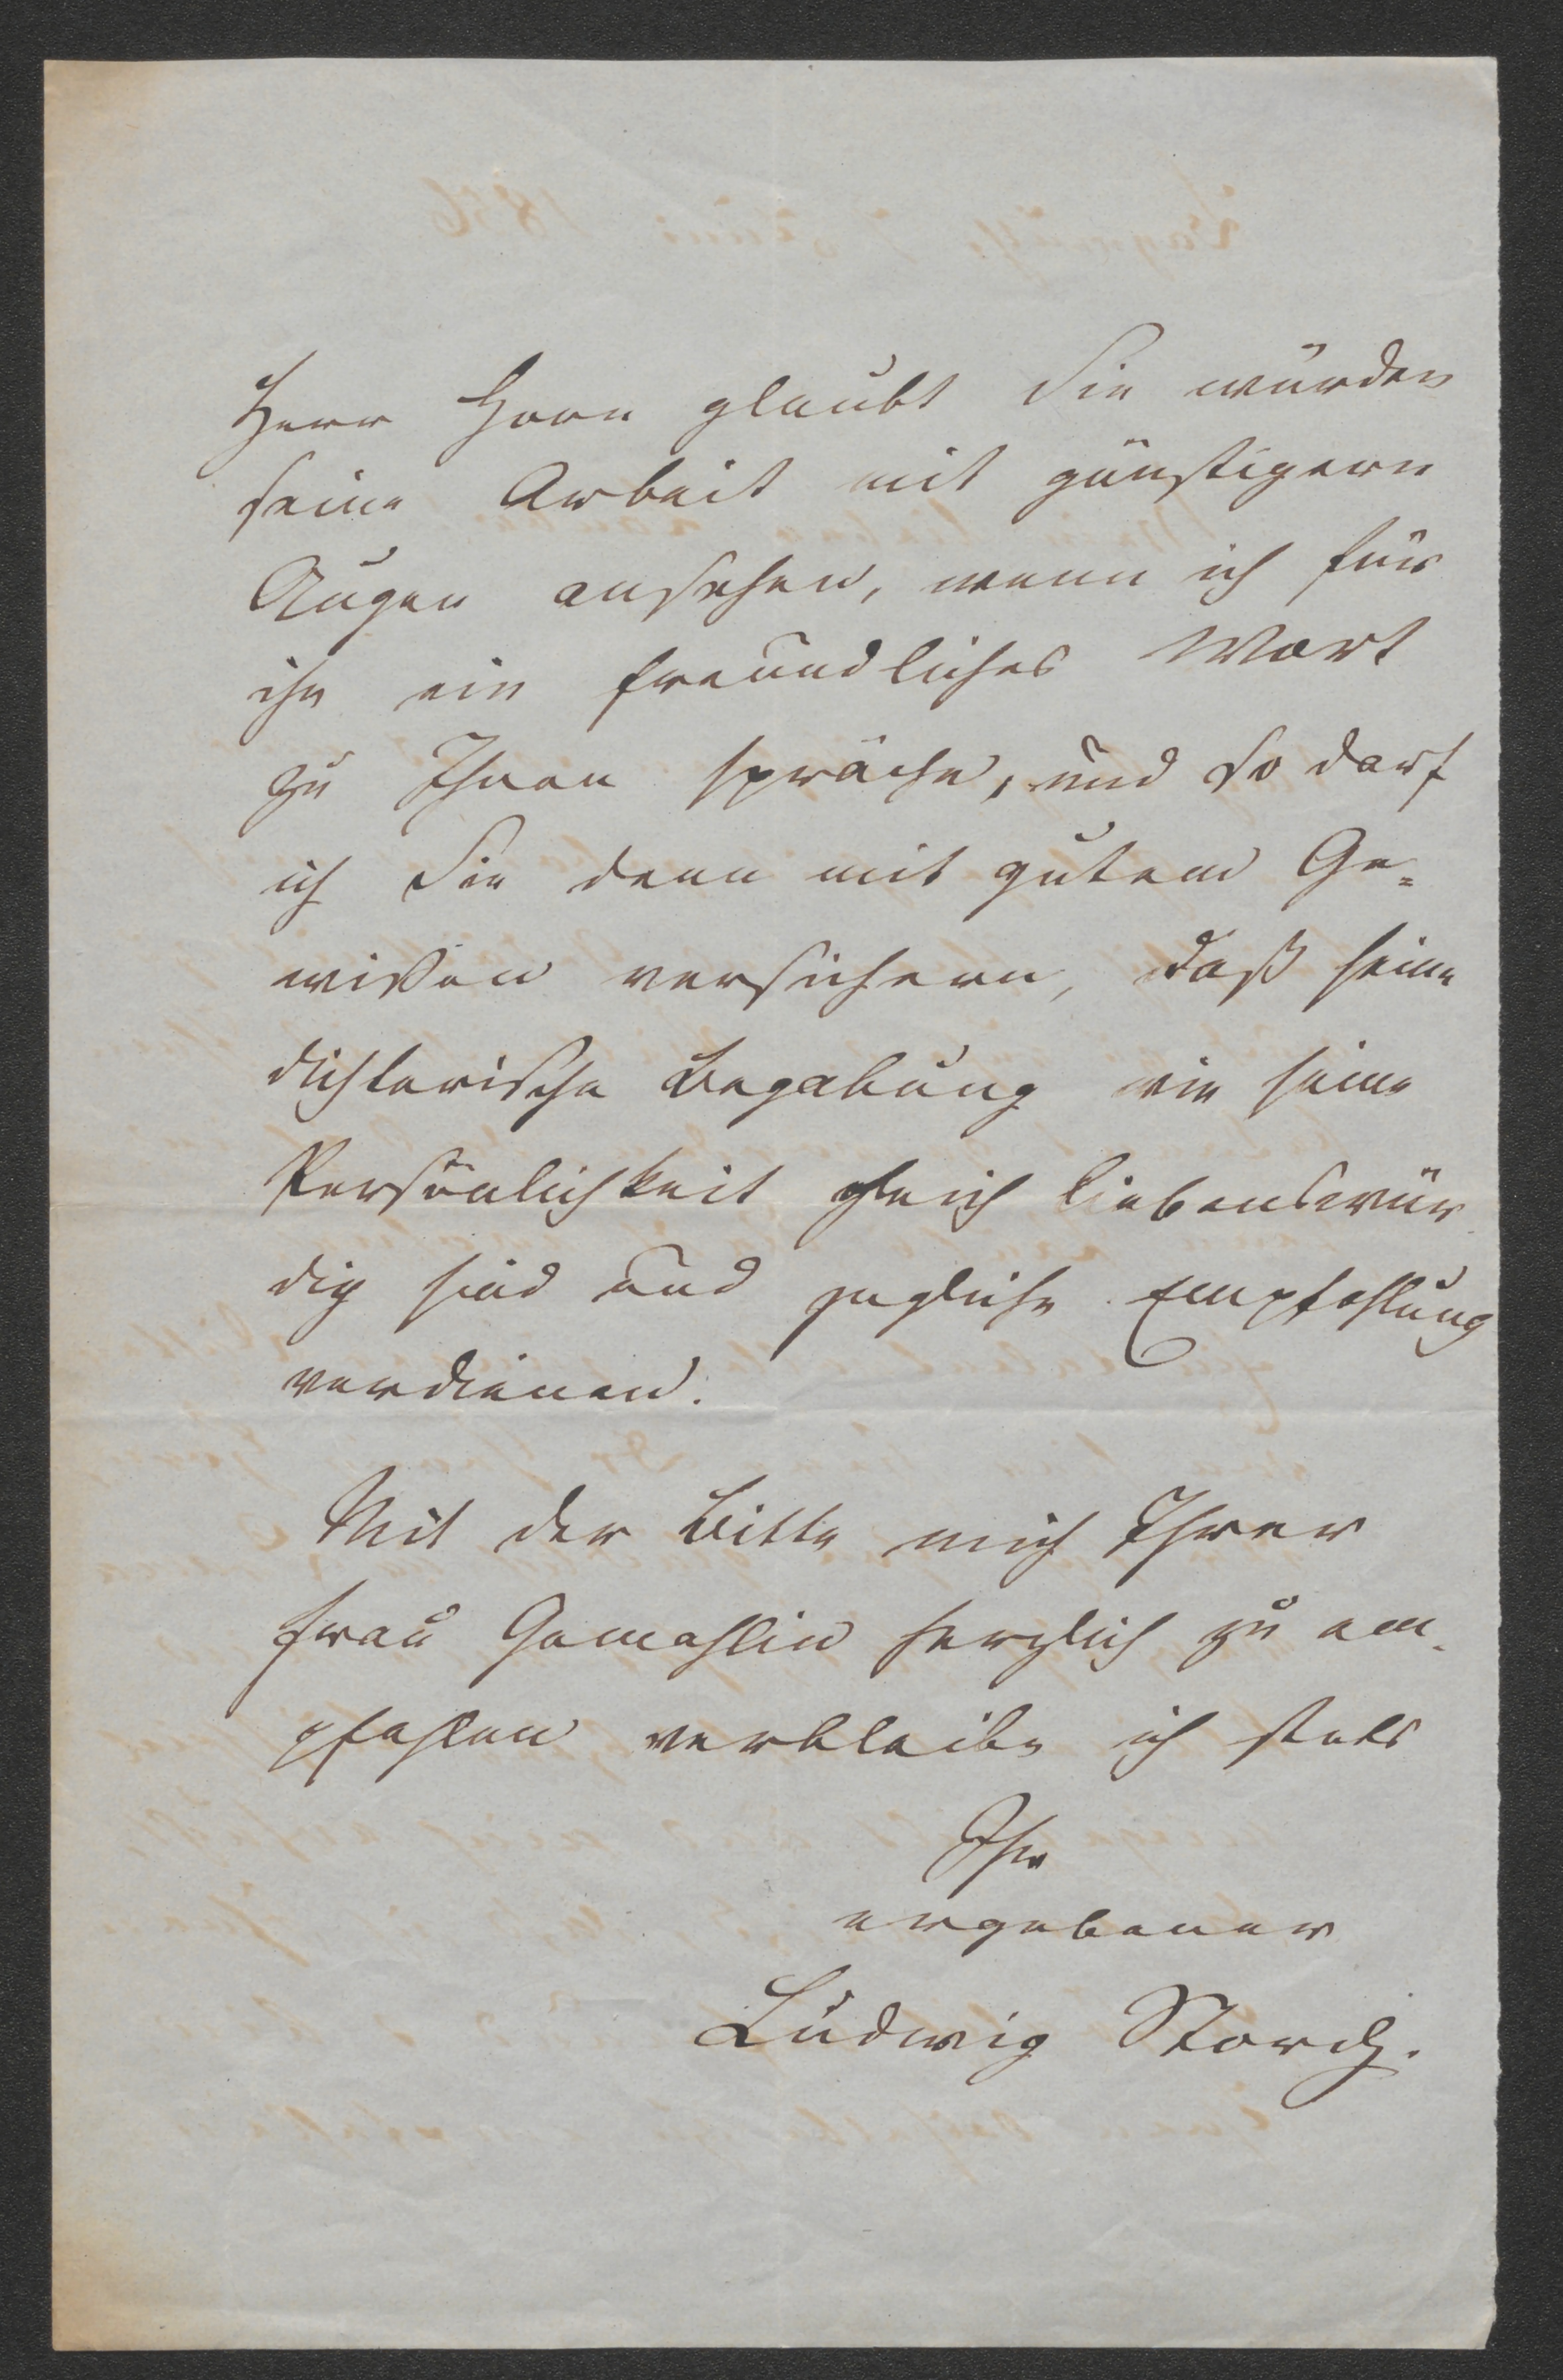 Herr Horn glaubt Sie würden
seine Arbeit mit günstigern
Augen ansehen, wenn ich für
ihn ein freundliches Wort
zu Ihnen spräche, und so darf
ich Sie denn mit gutem Ge=
wißen versichern, daß seine
dichterische Begabung wie seine
Persönlichkeit gleich liebenswür
dig sind und jegliche Empfehlung
verdienen.
Mit der Bitte mich Ihrer
Frau Gemahlin herzlich zu em-
pfehlen verbleibe ich stets
Ihr
ergebener
Ludwig Storch.